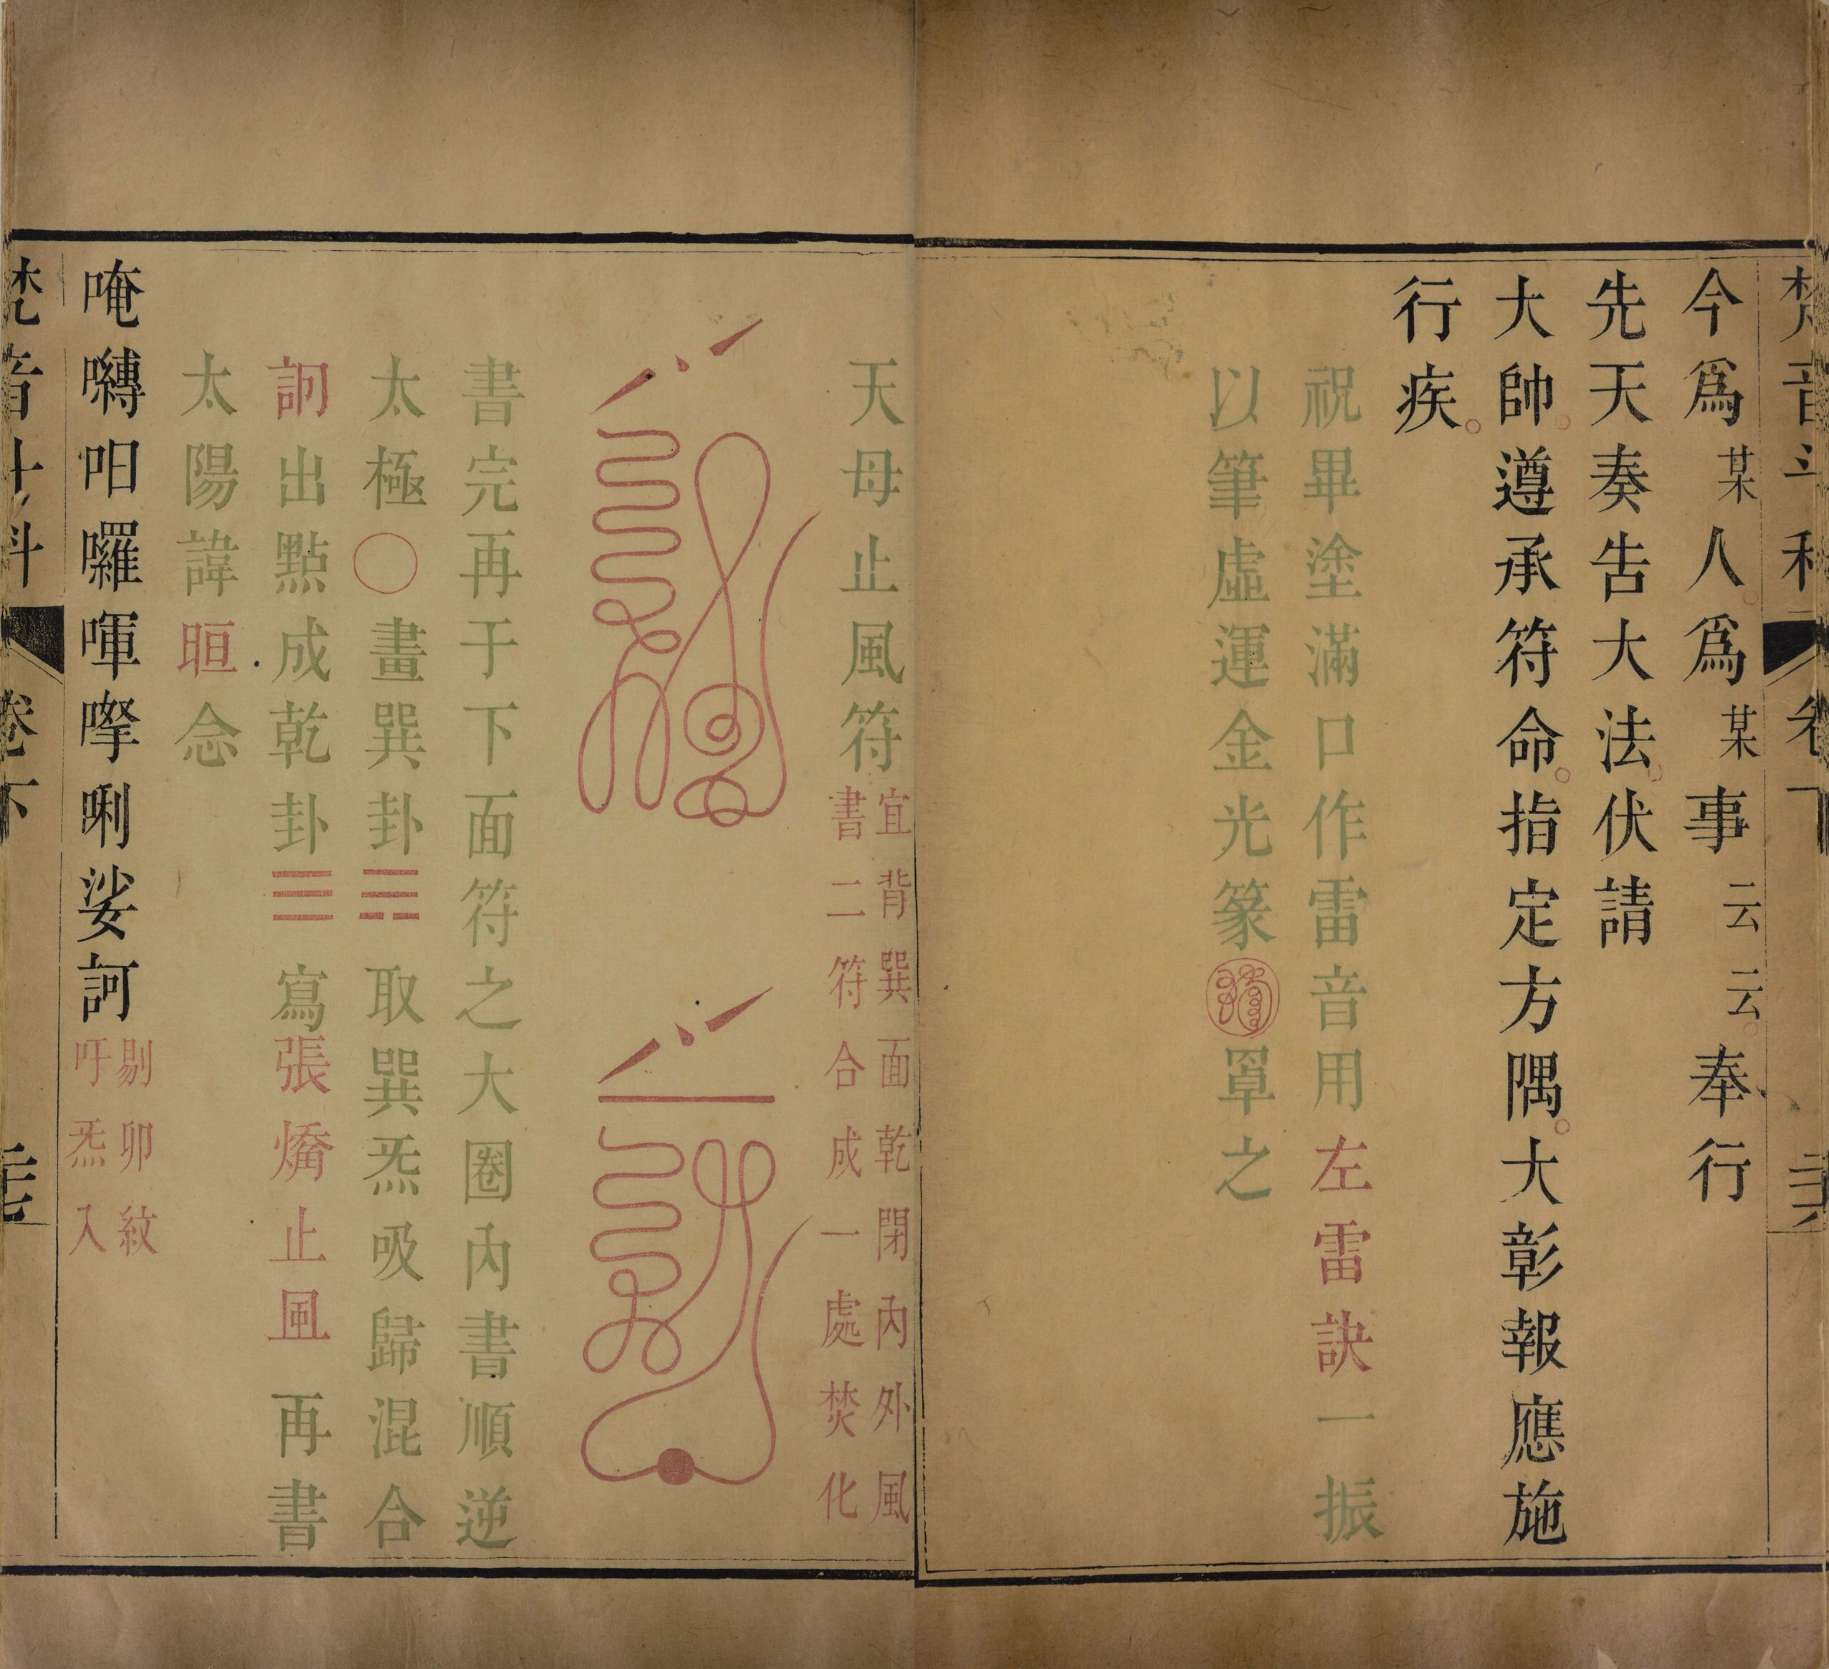 梵音斗科 卷下 二十六
今爲某人。爲某事云云。奉行
先天奏告大法。伏請
大帥。遵承符命。指定方隅。大彰報應施
行疾。
祝畢塗滿口作雷音用左雷訣一振
以筆虛運金光篆罩之
天母止風符
宜背巽面乾閉內外風
書二符合成一處焚化
書完再于下面符之大圈內書順逆
太極〇畫巽卦☴取巽炁吸歸混合
訶出點成乾卦☰寫張燆止風再書
太陽諱晅念
唵囀呬囉喗㗚唎娑訶
剔卯紋
吁炁入
梵音斗科 卷下 二十七